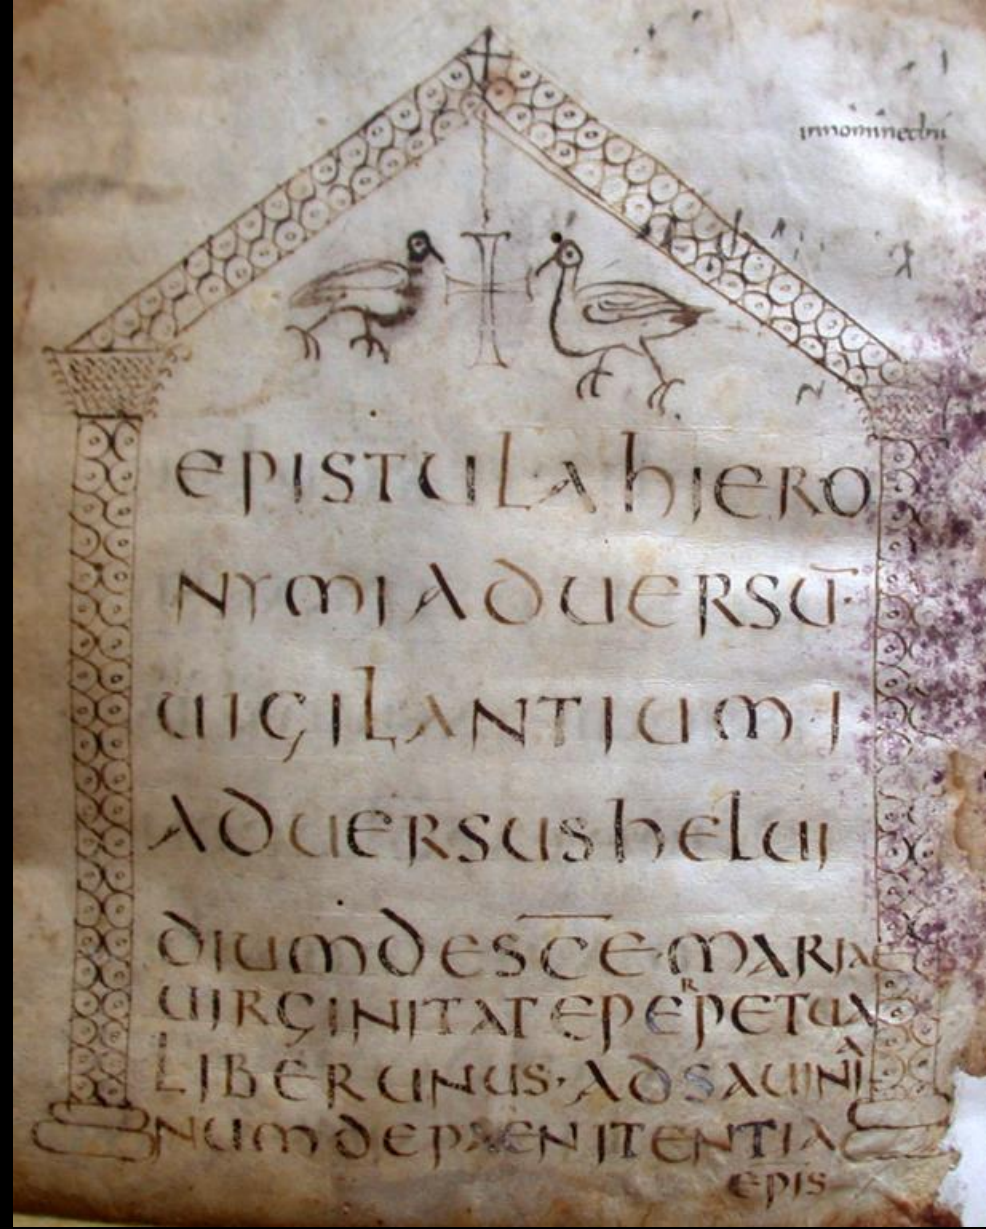 innominedni
EPISTULAhIERO
NYMIADUERSŪ·
UIGILANTIUM·I
ADUERSUShELUI
DIUMDESC̄E·MARIAE
UIRGINITATEPERPETUA
LIBERUNUS·ADSAUINIA
NUMDEPAENITENTIA
EPIS